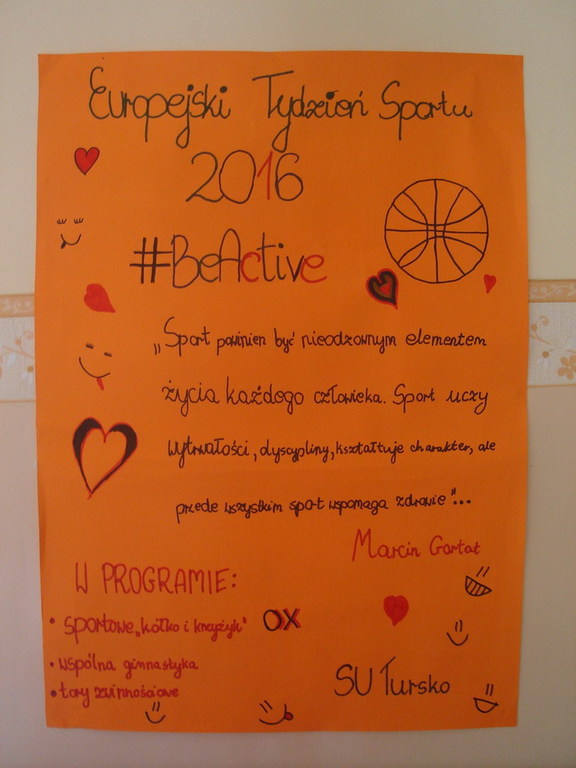 Europejski Tydzień Sportu
2016
#BeActive
„Sport powinien być nieodzownym elementem
życia każdego człowieka. Sport uczy
wytrwałości, dyscypliny, kształtuje charakter, ale
przede wszystkim sport wspomaga zdrowie"...
Marcin Gortat
W PROGRAMIE:
• sportowe „kółko i krzyżyk" OX
• wspólna gimnastyka
• tory zwinnościowe
SU Tursko